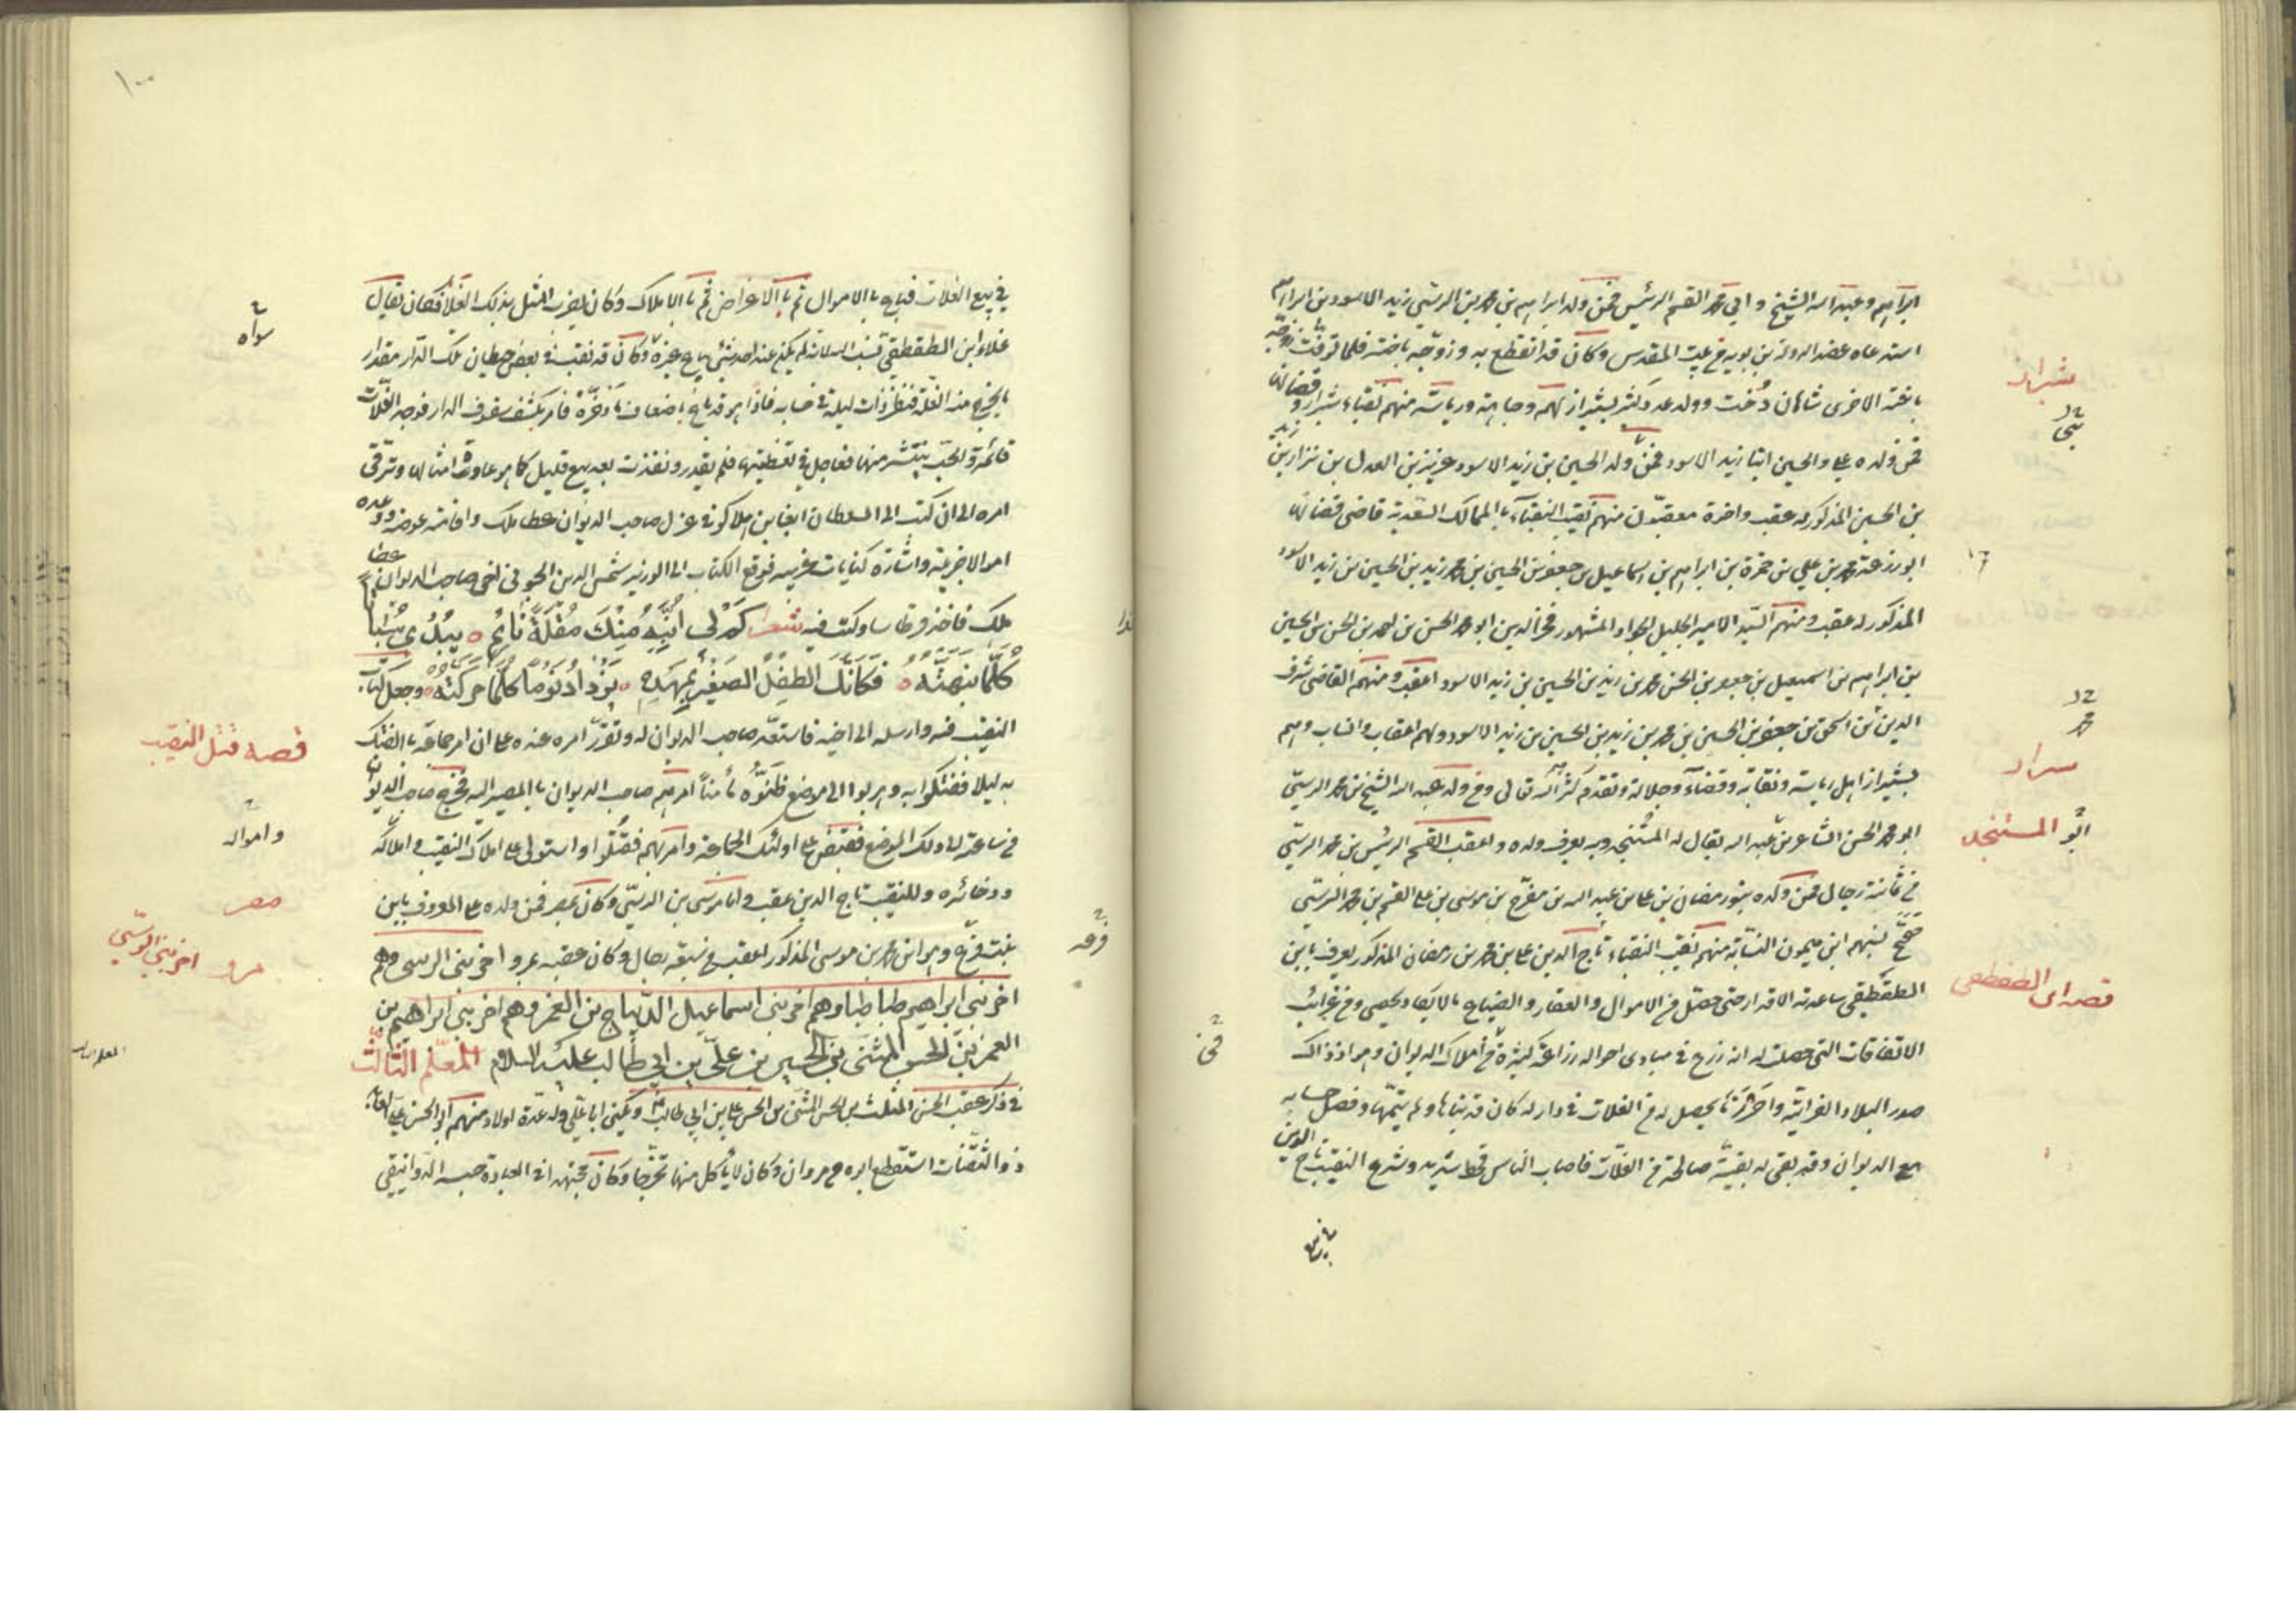 ابراهيم وعبد الله الشيخ وابي محمد القسم الرئيس فمن ولد ابراهيم بن محمد بن الرسّي زيد الاسود بن ابراهيم
استدعاه عضد الدولة بن بويه من بيت المقدس وكان قد انقطع به وزوّجه باخته فلما توفيت زوجه
باخته الاخرى شاهان دخت وولد عدد كثير بشيراز لهم وجاهة ورياسة منهم نقباء شيراز وقضاتها
فمن ولده علي والحسين ابنا زيد الاسود فمن ولد الحسين بن زيد الاسود عزيز بن العدل بن نزار بن زيد
بن الحسين المذكور له عقب واخوة معقبون منهم نقيب النقباء بالممالك قاضي قضاتها
ابو زرعة محمد بن علي بن حمزة بن ابراهيم بن اسماعيل بن جعفر بن الحسين بن محمد بن زيد بن الحسين بن زيد الاسود
المذكور له عقب ومنهم السيد الامير الجليل الجواد المشهور فخر الدين ابو محمد الحسن بن احمد بن الحسن بن الحسين
بن ابراهيم بن اسمعيل بن جعفر بن الحسن بن محمد بن زيد بن الحسين بن زيد الاسود اعقب ومنهم القاضي شرف
الدين بن اسحق بن جعفر بن الحسين بن محمد بن زيد بن الحسين بن زيد الاسود ولهم اعقاب وانساب وهم
بشيراز اهل رياسة ونقابة وقضاء وجلالة وتقدم كثرهم الله تعالى ومن ولد عبد الله الشيخ بن محمد الرسّي
ابو محمد الحسن الشاعر بن عبد الله يقال له المستنجد وبه يعرف ولده واعقب القسم الرئيس بن محمد الرسّي
في ثمانية رجال فمن ولده بنو رمضان بن علي بن عبد الله بن مفرّج بن موسى بن علي القسم بن محمد الرسّي
صحّح نسبهم ابن ميمون النسابة منهم نقيب النقباء تاج الدين علي بن محمد بن رمضان المذكور يعرف بابن
الطقطقي ساعدته الاقدار حتى حصّل من الاموال والعقار والضياع ما لا يكاد يحصى ومن غرائب
الاتفاقات التي حصلت له انه زرع في مبادي احواله زراعة كثيرة في املاك الديوان وهو اذ ذاك
صدر البلاد الفراتية واحرز ما يحصل له من الغلات في دار له كان قد بناها ولم يتمّها وفصل حسابه
مع الديوان وقد بقي له بقية صالحة من الغلات فاصاب الناس قحط شديد وشرع النقيب تاج الدين
شيراز
ابو المستنجد
قصه ابن الطقطقي
في بيع الغلات فباع بالاموال ثم بالاعراض ثم بالاملاك وكان يضرب المثل بذلك الغلاء فكان يقال
غلاء ابن الطقطقي لم يكن عند احد شئ يباع غيره وكان قد نقب في بعض حيطان تلك الدار مقدار
ما يخرج منه الغلّة فنظر ذات ليلة في حسابه فاذا هو قد باع اضعاف ما ذخره فامر بكشف سقوف الدار فوجد الغلات
قائمة والحب ينتشر منها فعاجل في تغطيتها فلم يقدر ونفذت بعد بيع قليل كما هو عاده امثالها وترقى
امره الى ان كتب الى السلطان ابغا بن هلاكو في عزل صاحب الديوان عطا ملك واقامته عوضه ووعده
اموالا جزيلة واشارة كنايات غريبه فوقع الكتاب الى الوزير شمس الدين الجويني اخي صاحب الديوان عطا
ملك فاخذ قرطاسا وكتب فيه شعرا كم لي انبّه منك مقلة نائم يبدي سباتا
كلّما نبهته فكانّك الطفل الصغير بمهده يزداد نوما كلّما حركته وجعل كتاب
النقيب فيه وارسله الى اخيه فاستعدّ صاحب الديوان له وتقرّر امره عنده على ان امر جماعة بالفتك
به ليلا ففتكوا به وهربوا الى موضع ظنّوه مأمنا امرهم صاحب الديوان بالمصير اليه فخرج صاحب الديوان
من ساعته الى ذلك الموضع فقبض على اولئك الجماعة وامر بهم فقتلوا واستولى على املاك النقيب واملاكه
وذخائره وللنقيب تاج الدين عقب واما موسى بن الرسّي وكان بمصر فمن ولده علي المعروف بابن
بنت فرعه وهو ابن محمد بن موسى المذكور اعقب من سبعة رجال وكان عقبه بمرو اخر بني الرسي وهم
اخر بني ابراهيم طباطبا وهم اخر بني اسماعيل الديباج بن الغمر وهم اخر بني ابراهيم بن
الغمر بن الحسن المثنى بن الحسن بن علي بن ابي طالب عليه السلام المعلم الثالث
في ذكر عقب الحسن المثلث بن الحسن المثنى بن الحسن بن علي بن ابي طالب ويكنى ابا علي وله عدّة اولاد منهم ابو الحسن علي العابد
ذو الثفنات استقطع ابوه مروان وكان لا ياكل منها تحرّجا وكان مجتهدا في العبادة حبسه الدوانيقي
١٠٠
سواه
قصه قتل النقيب
وامواله
مصر
مرو
اخر بني الرسّي
فرعه